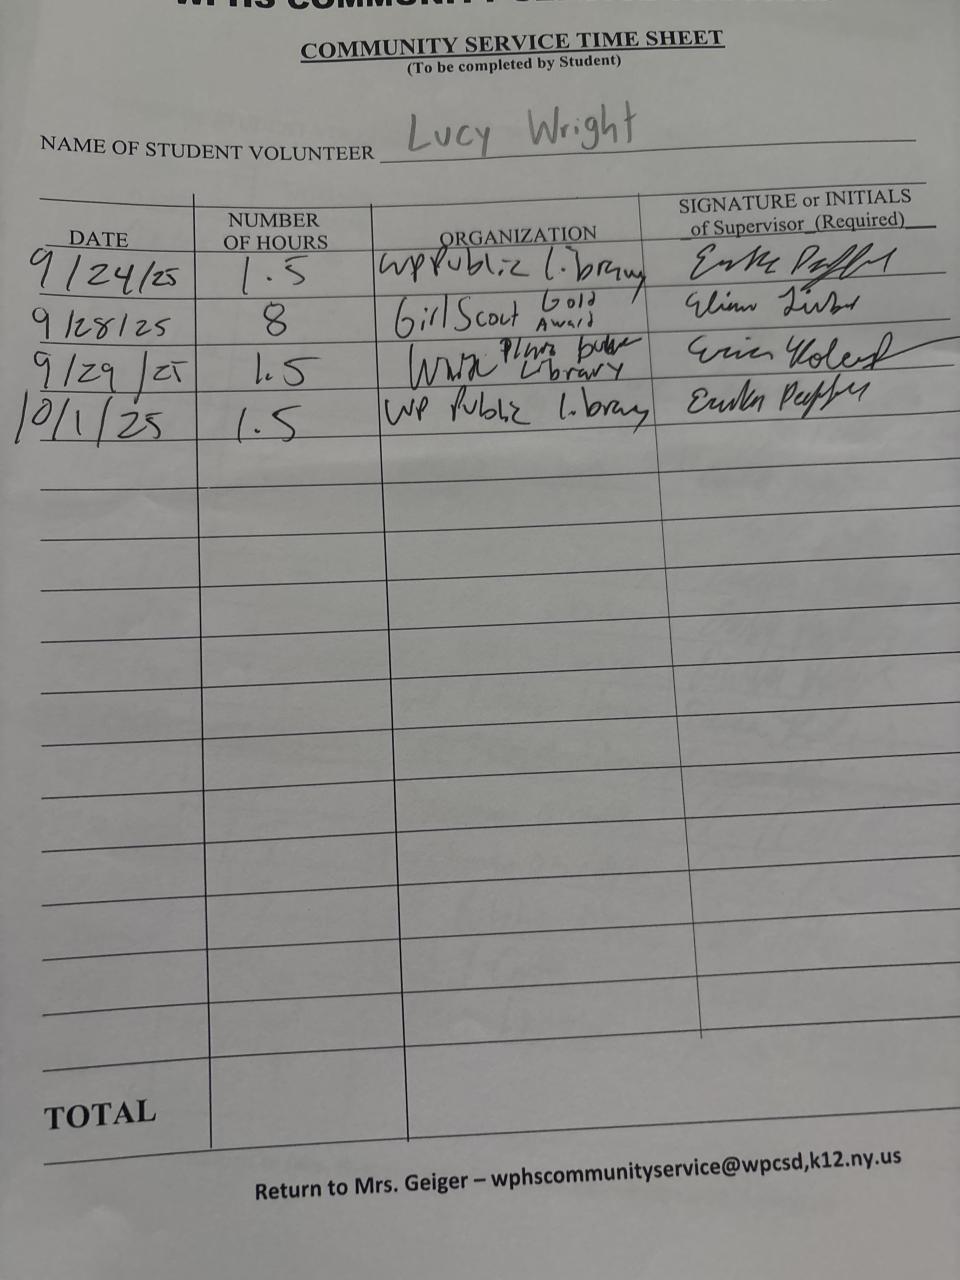 WPHS COMMUNITY
COMMUNITY SERVICE TIME SHEET
(To be completed by Student)
NAME OF STUDENT VOLUNTEER Lucy Wright
DATE NUMBER OF HOURS ORGANIZATION SIGNATURE or INITIALS of Supervisor (Required)
9/24/25 1.5 WP Public Library
9/28/25 8 Girl Scout Gold Award
9/29/25 1.5 Plains Library
10/1/25 1.5 WP Public Library
TOTAL
Return to Mrs. Geiger – wphscommunityservice@wpcsd,k12.ny.us